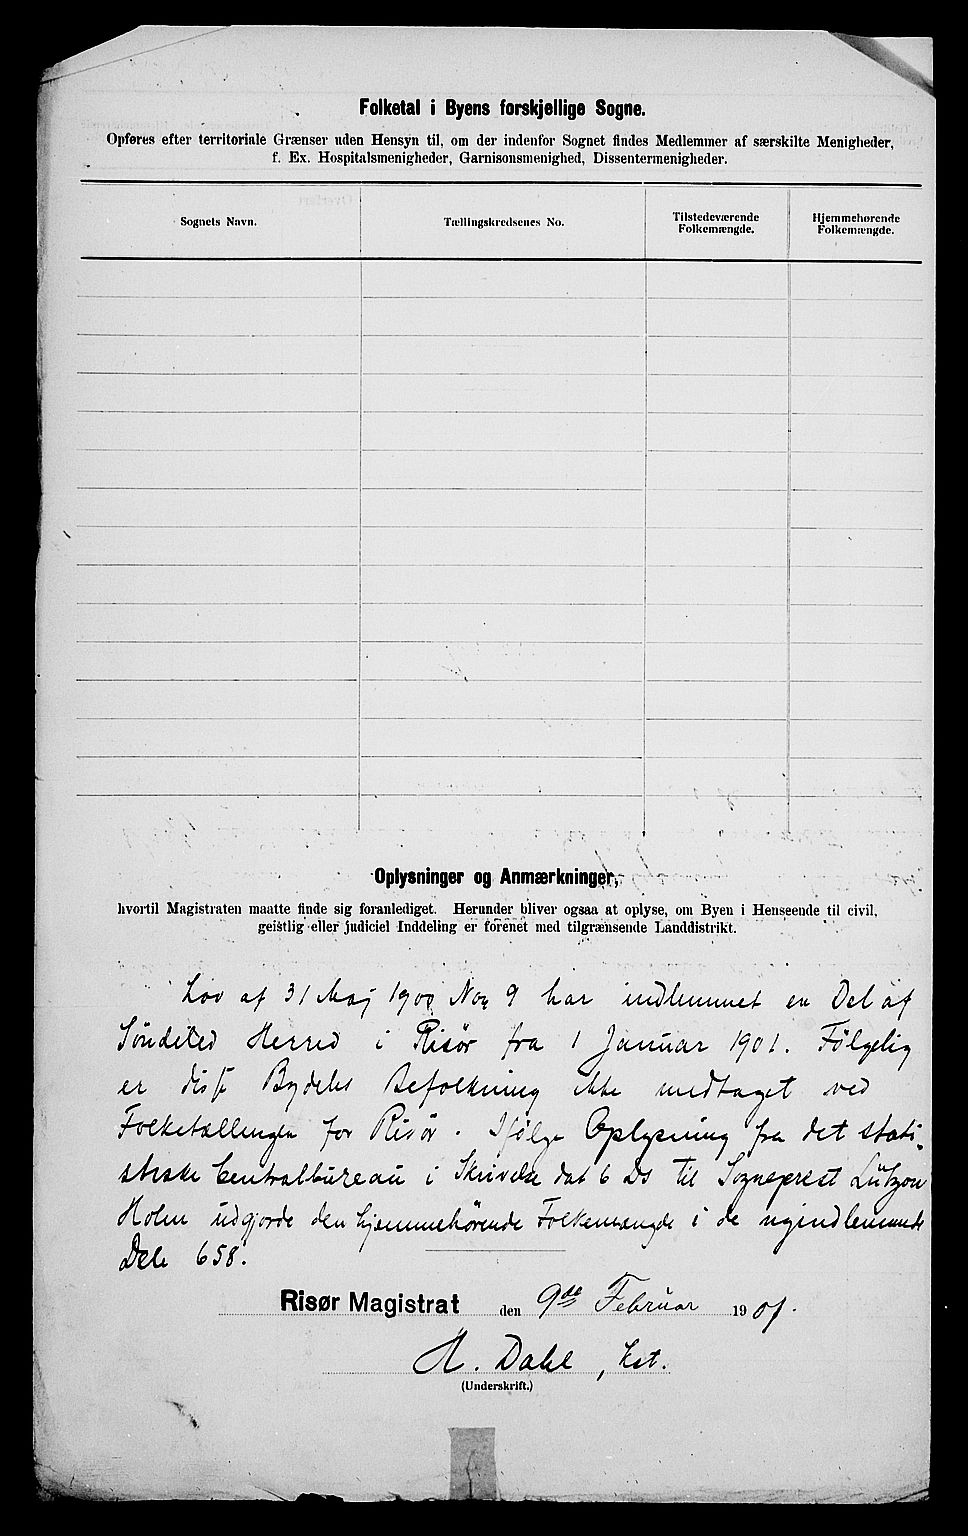 Folketal i Byens forskjellige Sogne.
Opføres efter territoriale Grænser uden Hensyn til, om der indenfor Sognet findes Medlemmer af særskilte Menigheder,
f. Ex. Hospitalsmenigheder, Garnisonsmenighed, Dissentermenigheder.
Sognets Navn.
Tællingskredsenes No.
Tilstedeværende Folkemængde.
Hjemmehørende Folkemængde.
Oplysninger og Anmærkninger,
hvortil Magistraten maatte finde sig foranlediget. Herunder bliver ogsaa at oplyse, om Byen i Henseende til civil,
geistlig eller judiciel Inddeling er forenet med tilgrænsende Landdistrikt.
Lov af 31 Maj 1900 No 9 har indlemmet en Del af
Søndeled Herred i Risør fra 1 Januar 1901. Følgelig
er disse Bydeles Befolkning ikke medtaget ved
Folketællingen for Risør. Ifølge Oplysning fra det stati-
stiske Centralbureau i Skrivelse dat 6 Ds til Sogneprest Lützow
Holm udgjorde den hjemmehørende Folkemængde i de nyindlemmede
Dele 658.
Risør Magistrat den 9de Februar 1901.
H. Dahl, kst.
(Underskrift.)